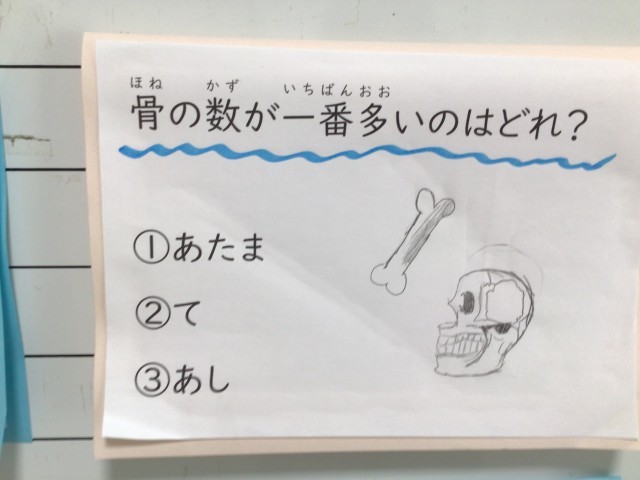 ほね かず いちばんおお
骨の数が一番多いのはどれ？
①あたま
②て
③あし